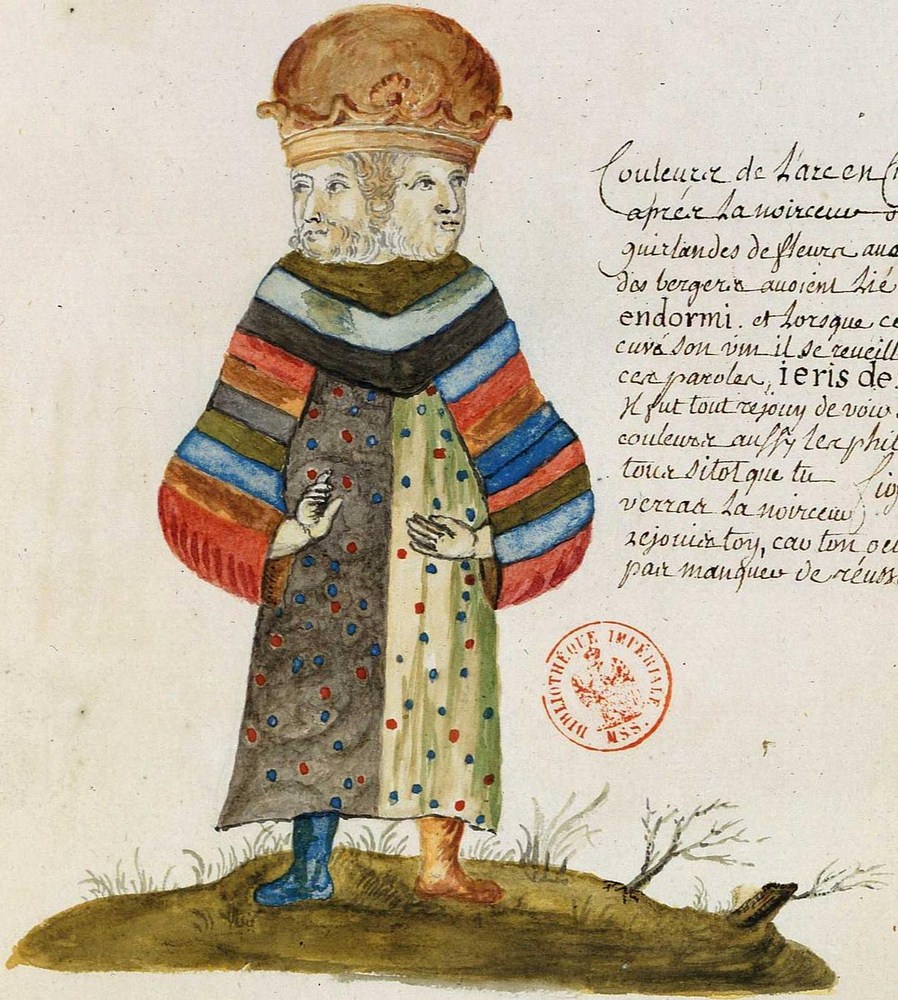 Couleurs de L'arc en
aprés La noirceur
guirlandes de fleurs
des bergers avoient Lié
endormi. et Lorsque
cuvé son vin il se reveill
ces paroles, ieris de
Il fut tout rejouy de voir
couleurs aussy les phil
tous sitot que tu
verras La noirceur
rejouis toy, car ton oeu
pas manquer de réuss
BIBLIOTHÈQUE IMPÉRIALE
MSS.